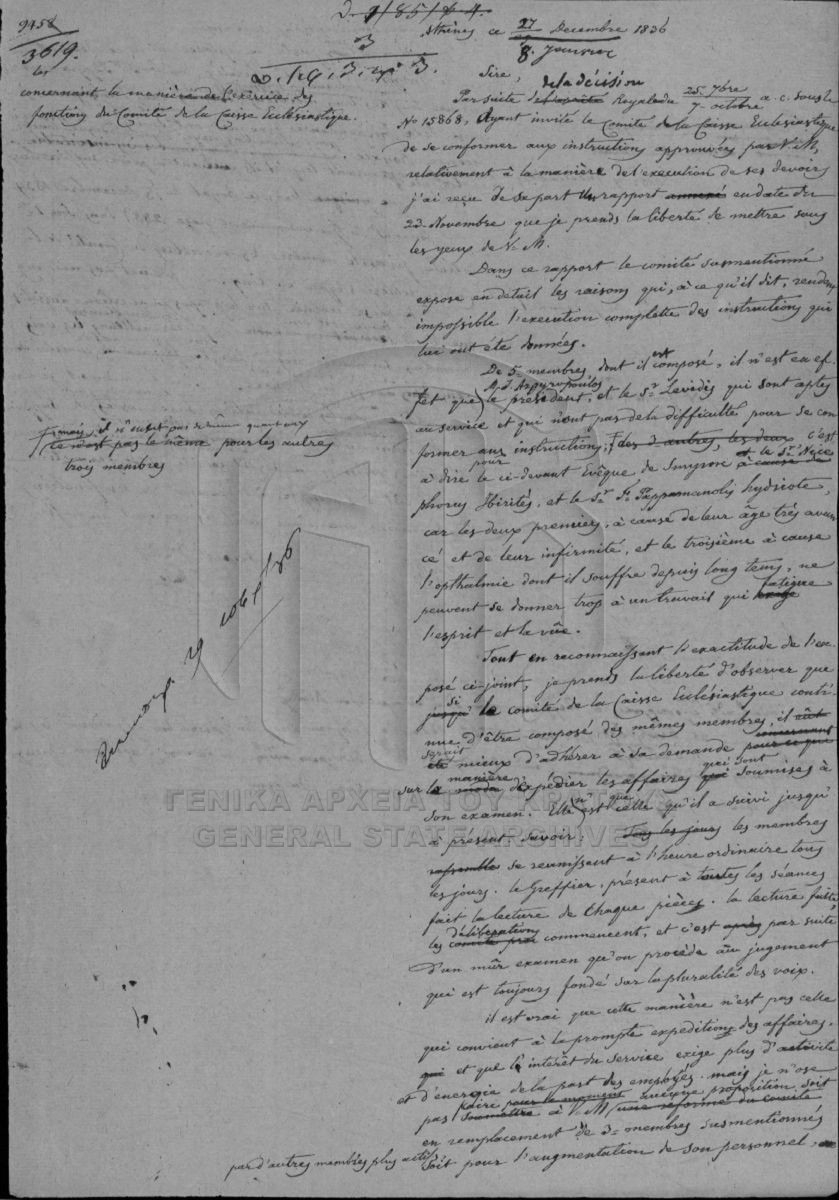 9458
3619.
Athènes ce 27 Decembre 1836
8. Janvier
concernant la manière de l'exercice des
fonctions du Comité de la Caisse Ecclésiastique.
Sire,
de la décision
Par suite Royale du 25 7bre a. c. sous le
7 octobre
No 15868, Ayant invité le Comité de la Caisse Ecclesiastique
de se conformer aux instructions approuvées par V. M.
relativement à la manière de l'execution de ses devoirs
j'ai reçu de sa part un rapport annexé en date du
23 Novembre que je prends la liberté de mettre sous
les yeux de V. M.
Dans ce rapport le comité susmentionné
expose en détail les raisons qui, à ce qu'il dit, rendent
impossible l'execution complette des instructions qui
lui ont été données.
De 5 membres dont il est composé, il n'est en ef
fet que le président, A. J. Aspyropoulos et le Sr Levidis qui sont aptes
au service et qui n'ont pas de la difficulté pour se con
former aux instructions, des 3 autres, les deux c'est
mais, il n'en est pas de même quant aux
ce n'est pas le même pour les autres
trois membres
à dire pour le ci-devant Evêque de Smyrne à cause de et le Sr Nice
phorus Hiritès, et le Sr Fs Pappamanolis hydriote,
car les deux premiers, à cause de leur âge très avan
cé et de leur infirmité, et le troisième à cause
l'opthalmie dont il souffre depuis long tems, ne
peuvent se donner trop à un travail qui exige fatigue
l'esprit et la vûe.
Tout en reconnaissant l'exactitude de l'ex-
posé ci-joint, je prends la liberté d'observer que
jusqu' si le comité de la Caisse Ecclésiastique conti
nue d'être composé des mêmes membres, il eût
été serait mieux d'adhérer à sa demande pour ce qui concernant
sur la moda manière d'expédier les affaires qui qui sont soumises à
son examen. Elle n'est que celle qu'il a suivi jusqu'
à présent savoir: Tous les jours les membres
rassemblés se reunissent à l'heure ordinaire tous
les jours. Le Greffier, présent à toutes les séances
fait la lecture de chaque pièce. La lecture faite,
les délibérations commencent, et c'est après par suite
d'un mûr examen qu'on procède au jugement
qui est toujours fondé sur la pluralité des voix.
il est vrai que cette manière n'est pas celle
qui convient à la prompte expedition des affaires,
qui et que l'intérêt du service exige plus d'activité
et d'énergie de la part des employés. mais je n'ose
pas faire pour le moment quelque proposition soit
soumettre à V. M. une reforme du comité
en remplacement de 3 membres susmentionnés
par d'autres membres plus actifs soit pour l'augmentation de son personnel,
ΓΕΝΙΚΑ ΑΡΧΕΙΑ ΤΟΥ ΚΡΑΤΟΥΣ
GENERAL STATE ARCHIVES